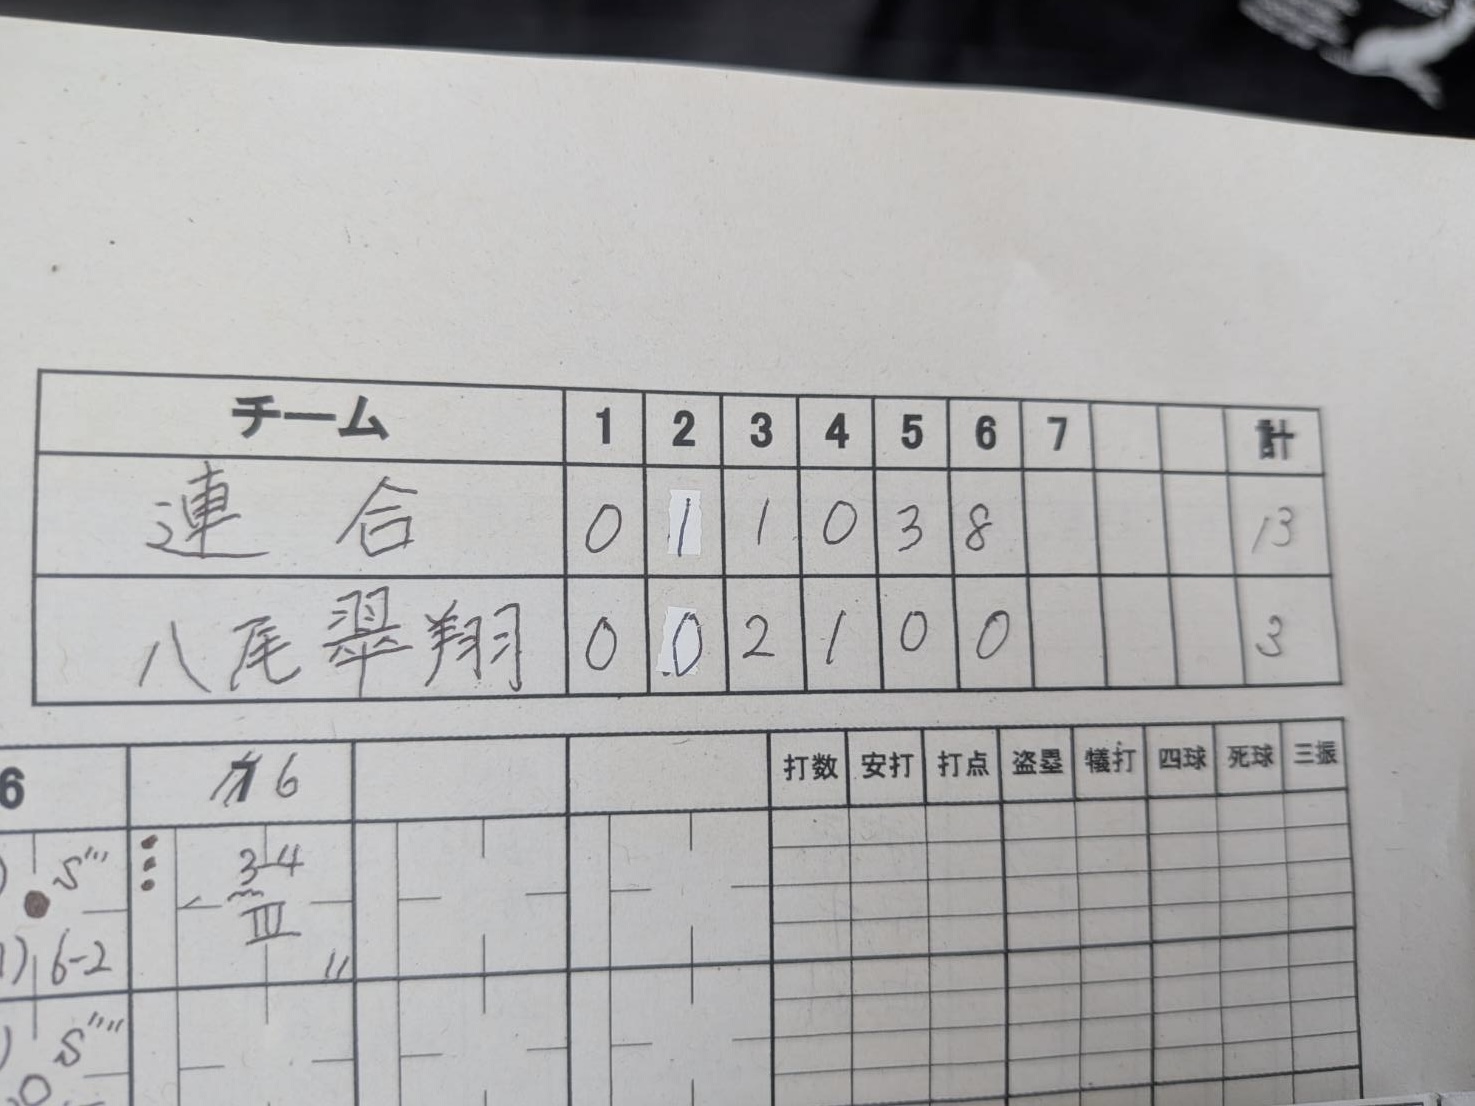 チーム 1 2 3 4 5 6 7 計
連合 0 1 1 0 3 8 13
八尾翠翔 0 0 2 1 0 0 3
6 6 打数 安打 打点 盗塁 犠打 四球 死球 三振
S''' 3-4
III
1) 6-2 〃
S''''